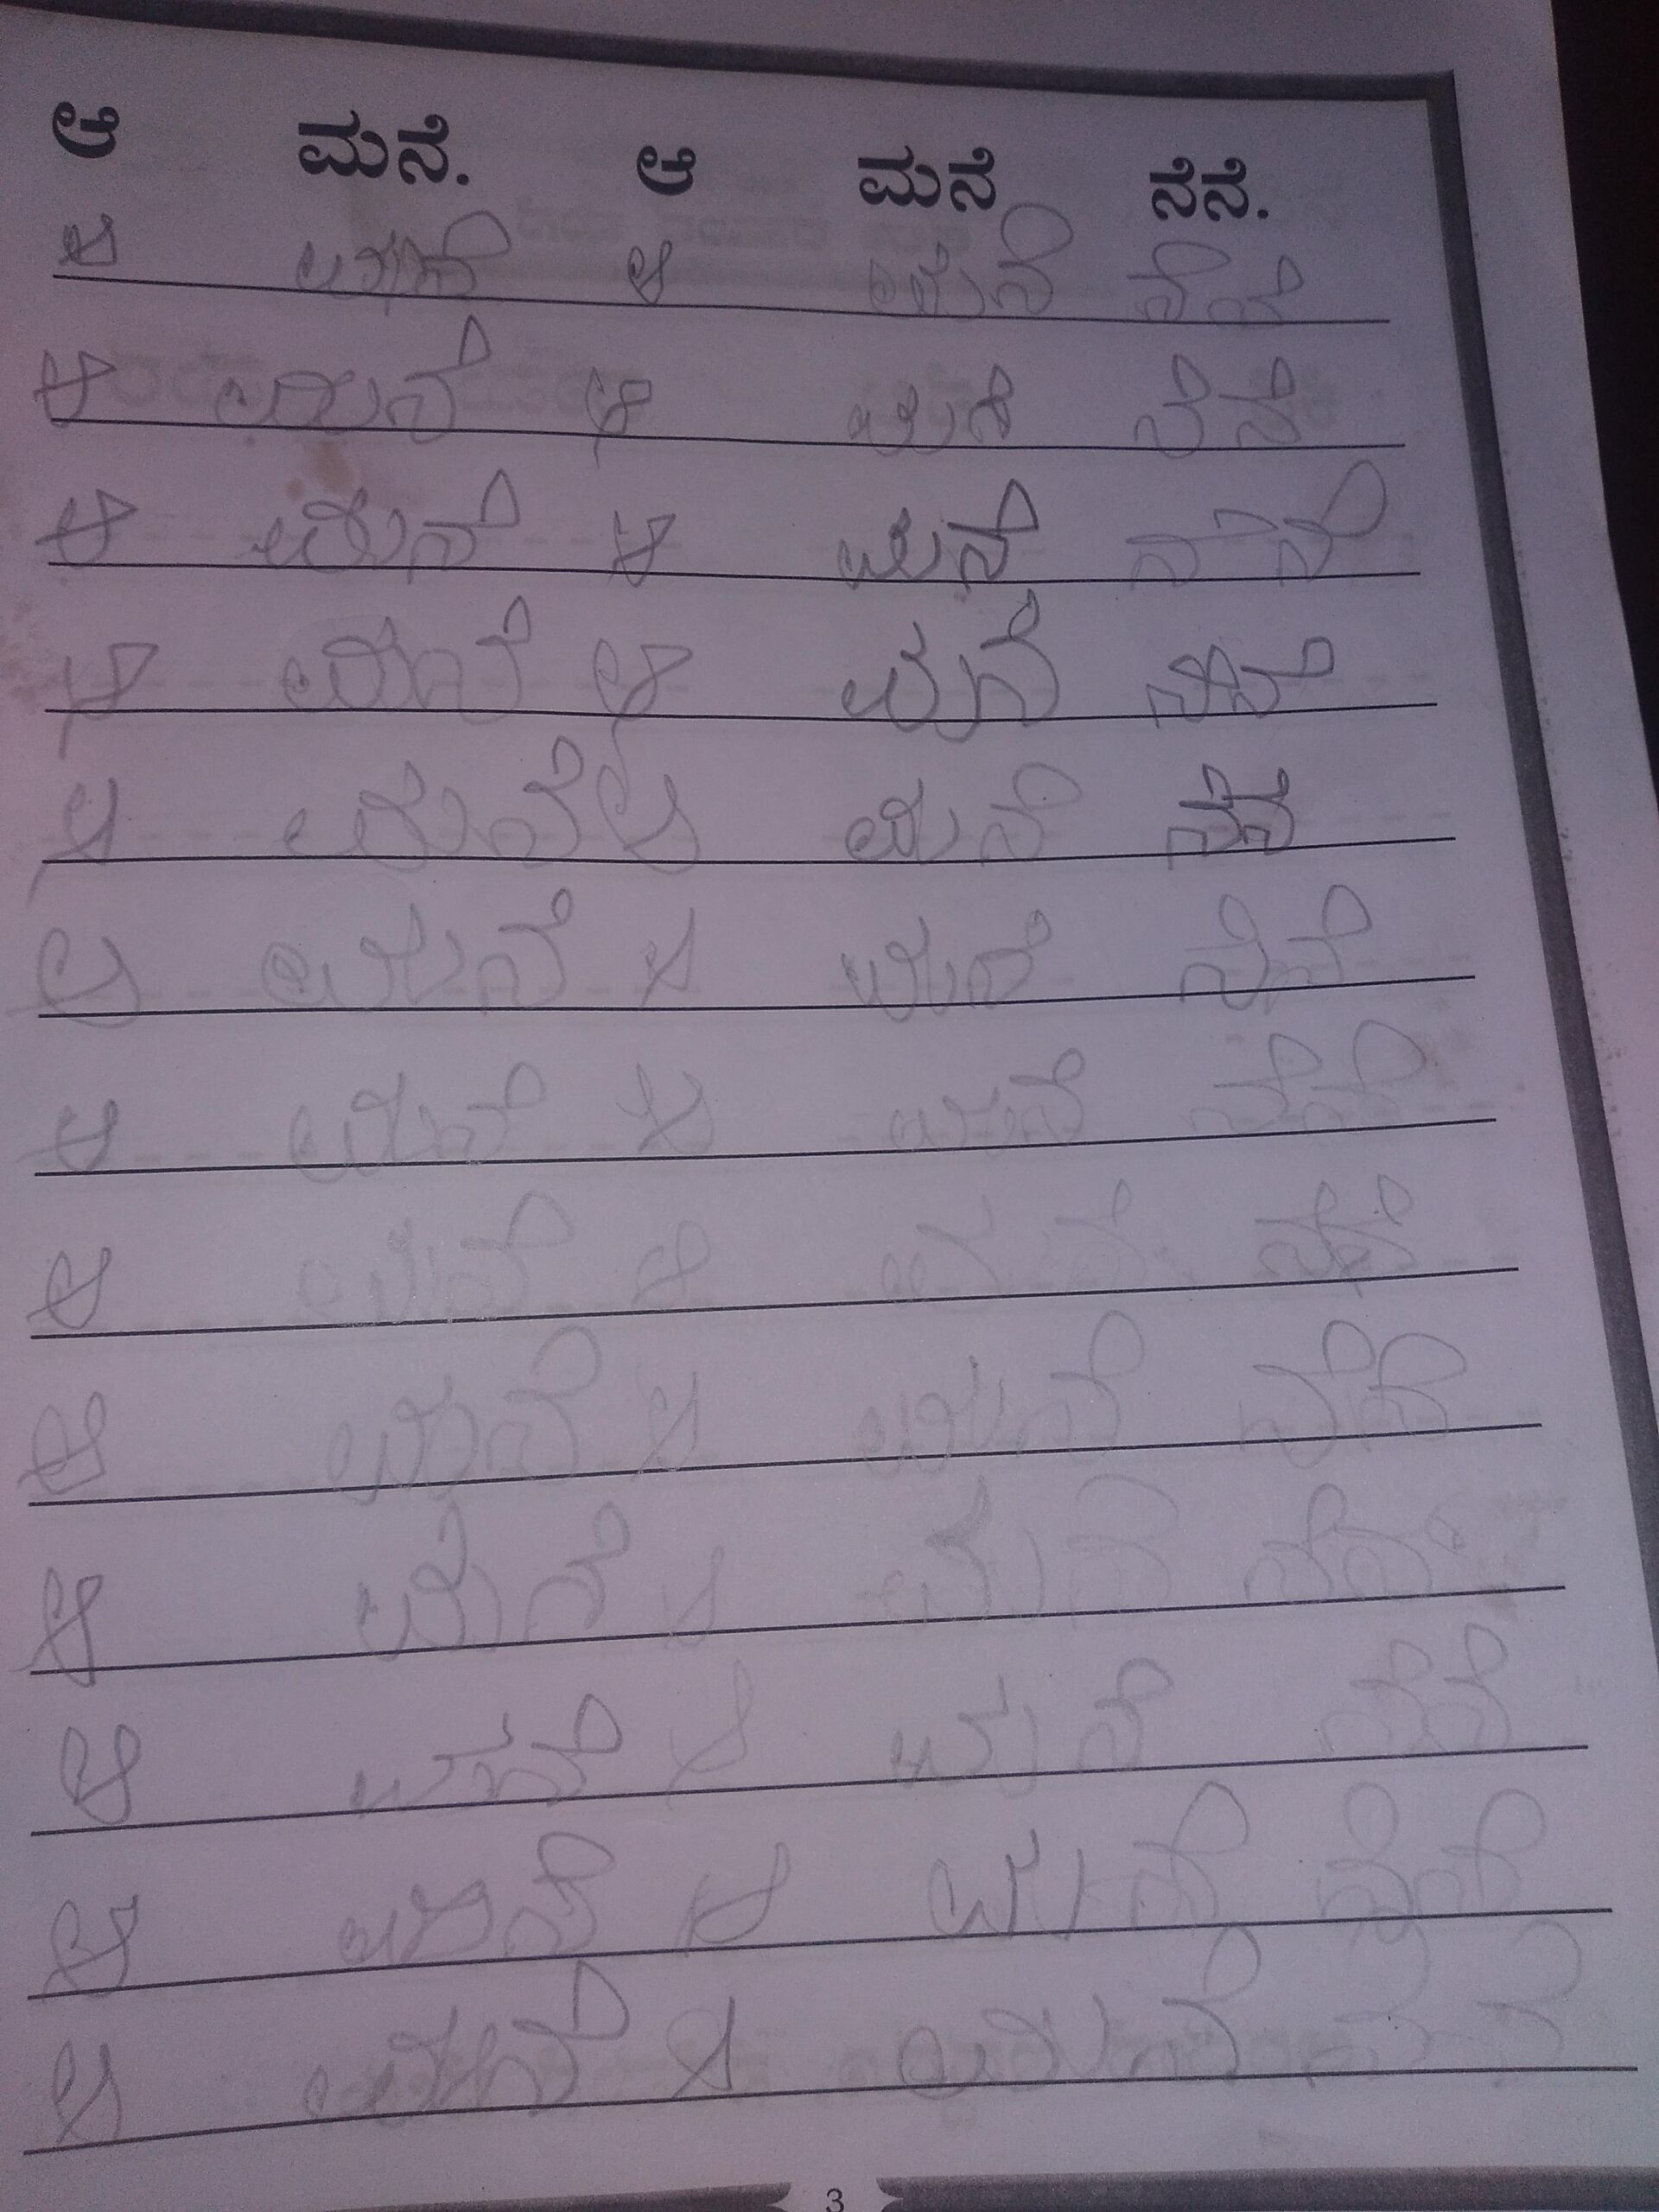 ಆ ಮನೆ. ಆ ಮನೆ ನೆನೆ.
ಆ ಮನೆ ಆ ಮನೆ ನೆನೆ
ಆ ಮನೆ ಆ ಮನೆ ನೆನೆ
ಆ ಮನೆ ಆ ಮನೆ ನೆನೆ
ಆ ಮನೆ ಆ ಮನೆ ನೆನೆ
ಆ ಮನೆ ಆ ಮನೆ ನೆನೆ
ಆ ಮನೆ ಆ ಮನೆ ನೆನೆ
ಆ ಮನೆ ಆ ಮನೆ ನೆನೆ
ಆ ಮನೆ ಆ ಮನೆ ನೆನೆ
ಆ ಮನೆ ಆ ಮನೆ ನೆನೆ
ಆ ಮನೆ ಆ ಮನೆ ನೆನೆ
ಆ ಮನೆ ಆ ಮನೆ ನೆನೆ
ಆ ಮನೆ ಆ ಮನೆ ನೆನೆ
ಆ ಮನೆ ಆ ಮನೆ ನೆನೆ
3